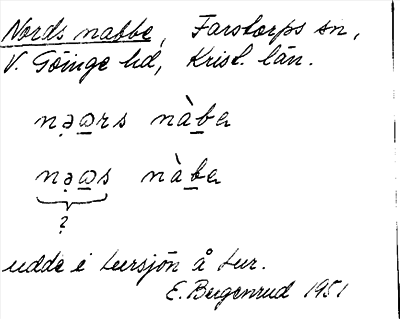 Nords nabbe, Farstorps sn,
V. Göinge hd, Krist. län.
nə̣ω̲rs nàb̲a
nə̣ω̲s nàb̲a
?
udde i Lursjön å Lur.
E. Bergenrud 1951